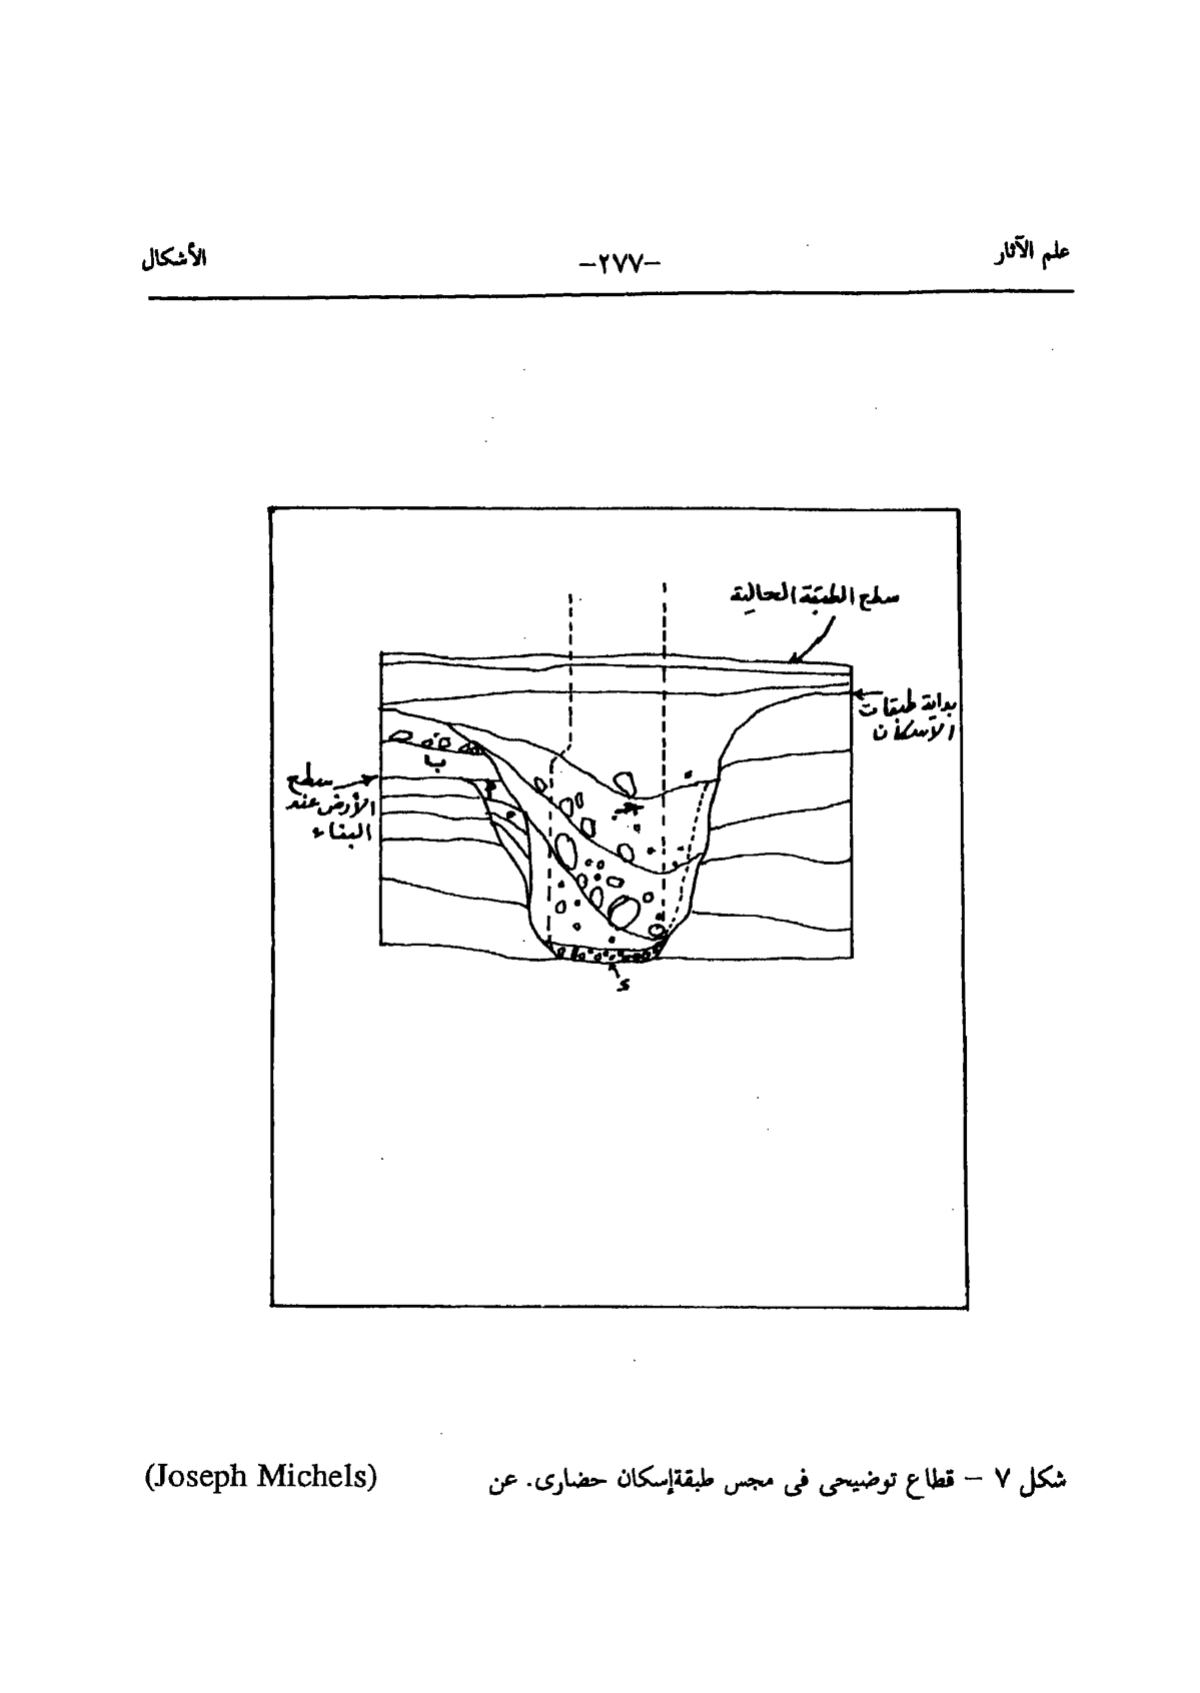 علم الآثار
-٢٧٧-
الأشكال
سطح الطبقة الحالية
بداية طبقات
الآسكان
سطح
الأرض عند
البناء
ب
أ
ج
د
شكل ٧ - قطاع توضيحى فى مجس طبقةإسكان حضارى. عن (Joseph Michels)